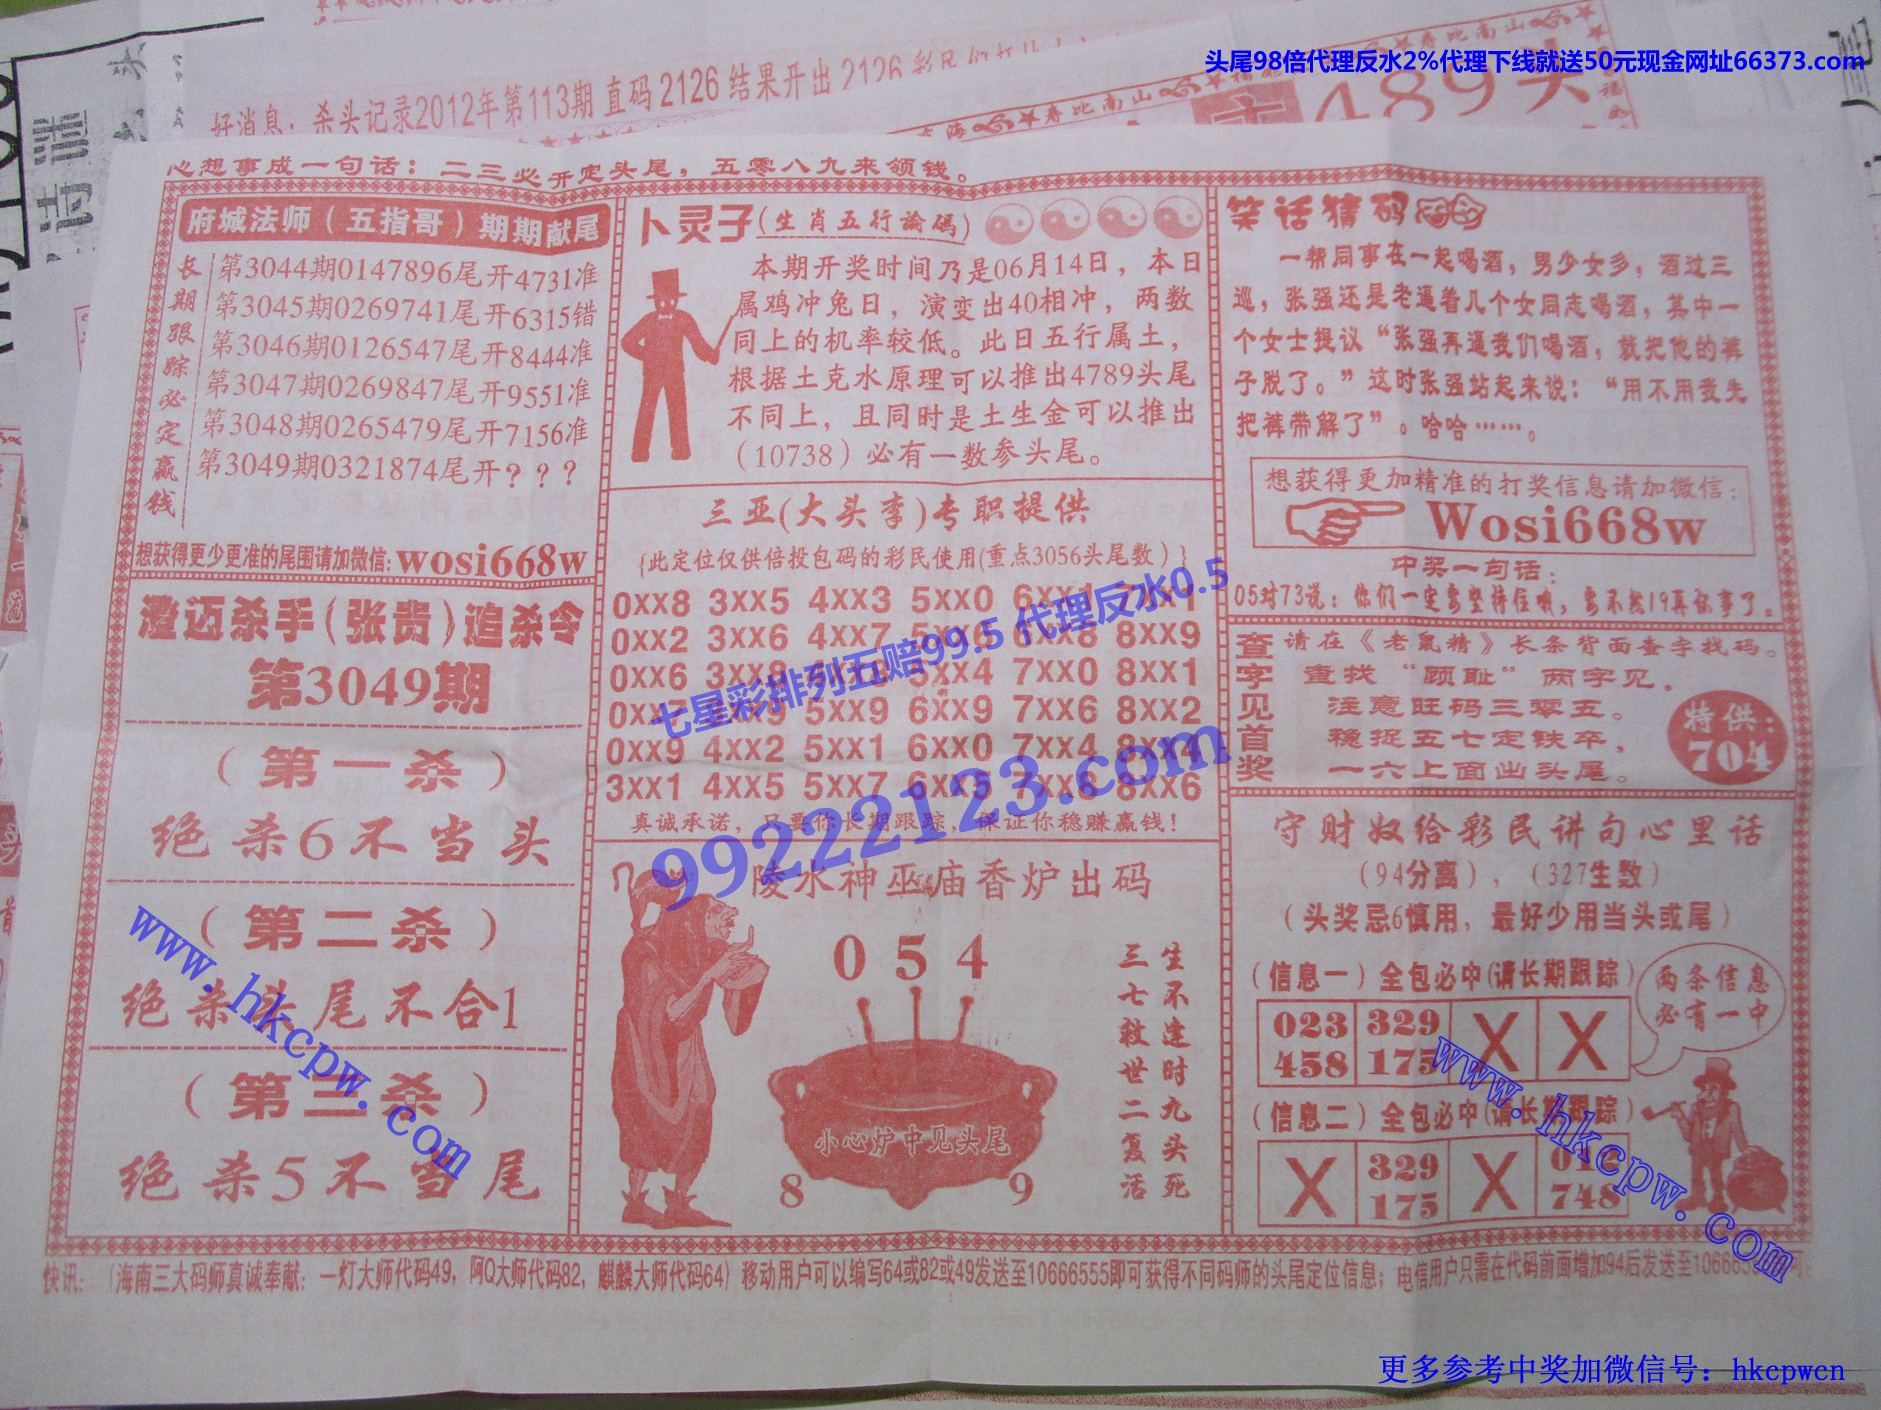 头尾98倍代理反水2%代理下线就送50元现金网址66373.com
好消息：杀头记录2012年第113期 直码 2126 结果开出 2126
春比南山
489头
心想事成一句话：二三必开定头尾，五零八九来领钱。
府城法师（五指哥）期期献尾
长期跟踪必定赢钱
第3044期0147896尾开4731准
第3045期0269741尾开6315错
第3046期0126547尾开8444准
第3047期0269847尾开9551准
第3048期0265479尾开7156准
第3049期0321874尾开？？？
想获得更少更准的尾围请加微信:wosi668w
澄迈杀手（张贵）追杀令
第3049期
（第一杀）
绝杀6不当头
（第二杀）
绝杀头尾不合1
（第三杀）
绝杀5不当尾
卜灵子(生肖五行論碼)
本期开奖时间乃是06月14日，本日
属鸡冲兔日，演变出40相冲，两数
同上的机率较低。此日五行属土，
根据土克水原理可以推出4789头尾
不同上，且同时是土生金可以推出
（10738）必有一数参头尾。
三亚(大头李)专职提供
{此定位仅供倍投包码的彩民使用(重点3056头尾数）}
0xx8 3xx5 4xx3 5xx0 6xx1 7xx1
0xx2 3xx6 4xx7 6xx8 8xx9
0xx6 3xx8 5xx4 7xx0 8xx1
5xx9 6xx9 7xx6 8xx2
0xx9 4xx2 5xx1 6xx0 7xx4 8xx4
3xx1 4xx5 5xx7 6xx5 7xx8 8xx6
真诚承诺，只要你长期跟踪，保证你稳赚赢钱！
七星彩排列五赔99.5 代理反水0.5
99222123.com
陵水神巫庙香炉出码
054
小心炉中见头尾
8 9
生不逢时九头死
三七救世二复活
笑话猜码
一帮同事在一起喝酒，男少女多，酒过三
巡，张强还是老逼着几个女同志喝酒，其中一
个女士提议“张强再逼我们喝酒，就把他的裤
子脱了。”这时张强站起来说：“用不用我先
把裤带解了”。哈哈……。
想获得更加精准的打奖信息请加微信：
Wosi668w
中奖一句话：
05对73说：他们一定要坚持住哦，要不然19再坏事了。
查字见首奖
请在《老鼠精》长条背面查字找码。
查找“顾耻”两字见，
注意旺码三零五。
稳捉五七定铁卒，
一六上面出头尾。
特供：
704
守财奴给彩民讲句心里话
（94分离），（327生数）
（头奖忌6慎用，最好少用当头或尾）
（信息一）全包必中(请长期跟踪)
023 329 X X
458 175
两条信息
必有一中
（信息二）全包必中(请长期跟踪)
X 329 X
175 748
快讯：（海南三大码师真诚奉献：一灯大师代码49，阿Q大师代码82，麒麟大师代码64）移动用户可以编写64或82或49发送至10666555即可获得不同码师的头尾定位信息；电信用户只需在代码前面增加94后发送至
www.hkcpw.com
www.hkcpw.com
更多参考中奖加微信号：hkcpwcn